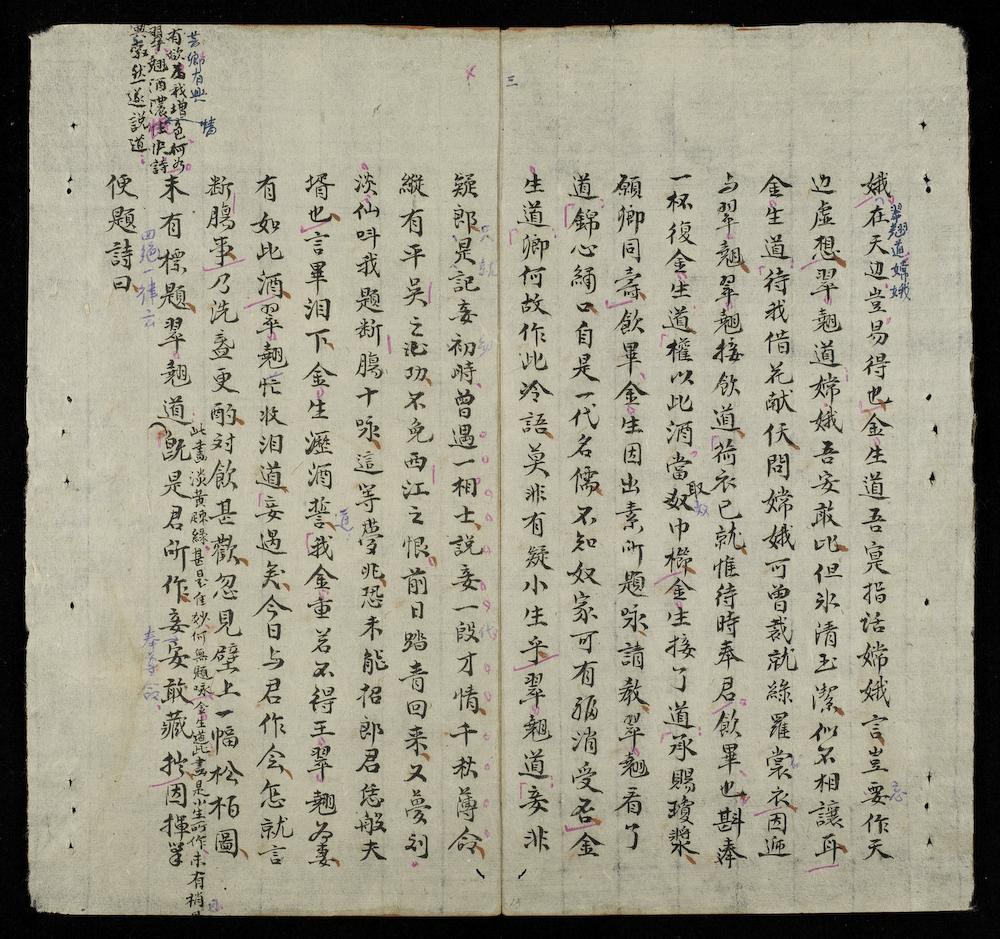 三
娥在天边豈易得也金生道吾寔指话嫦娥言豈要作天
翠翘道嫦娥
边虚想翠翘道嫦娥吾安敢比但氷清玉潔似不相讓耳
金生道待我借花献佛問嫦娥可曾裁就綠羅裳衣因迎
与翠翘翠翘接飲道荷衣已就惟待時奉君飲畢也斟奉
一杯復金生道權以此酒當奴巾櫛金生接了道承賜瓊漿
取
願卿同壽飲畢金生因出素所題咏請教翠翘看了
道錦心綉口自是一代名儒不知奴家可有福消受否金
生道卿何故作此冷語莫非有疑小生乎翠翘道妾非
疑郎是記妾初時曾遇一相士説妾一段才情千秋薄命
縱有平吴之功不免西江之恨前日踏青回来又夢刘
淡仙呌我題断膓十咏這等夢兆恐未能招郎君恁般夫
壻也言畢泪下金生瀝酒誓我金重若不得王翠翘為妻
道
有如此酒翠翘忙收泪道妾過矣今日与君作会怎就言
断膓事乃洗盞更酌対飲甚歡忽見壁上一幅松柏圖
未有標題翠翘道既是君所作妾安敢藏拙因揮筆
此畫淡黄疎綠甚是佳妙何無題咏金生道此畫是小生所作未有
四絕一律云
便題詩曰
芸鄉有興
有欲為我增色何如
翠翘酒濃
興教然遂説道